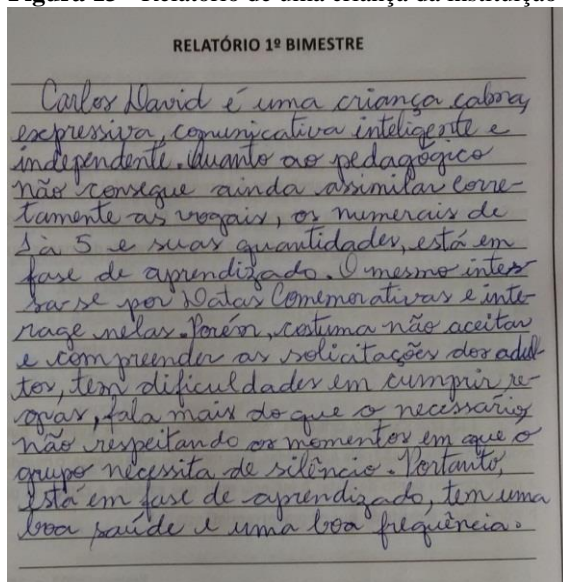 Figura 13 - Relatório de uma criança da instituição
RELATÓRIO 1º BIMESTRE
Carlos David é uma criança calma,
expressiva, comunicativa inteligente e
independente. Quanto ao pedagógico
não consegue ainda assimilar corre-
tamente as vogais, os numerais de
1 à 5 e suas quantidades, está em
fase de aprendizado. O mesmo interes
sa-se por Datas Comemorativas e inte-
rage nelas. Porém, costuma não aceitar
e compreender as solicitações dos adul-
tos, tem dificuldades em cumprir re-
gras, fala mais do que o necessário,
não respeitando os momentos em que o
grupo necessita de silêncio. Portanto,
está em fase de aprendizado, tem uma
boa saúde e uma boa frequência.